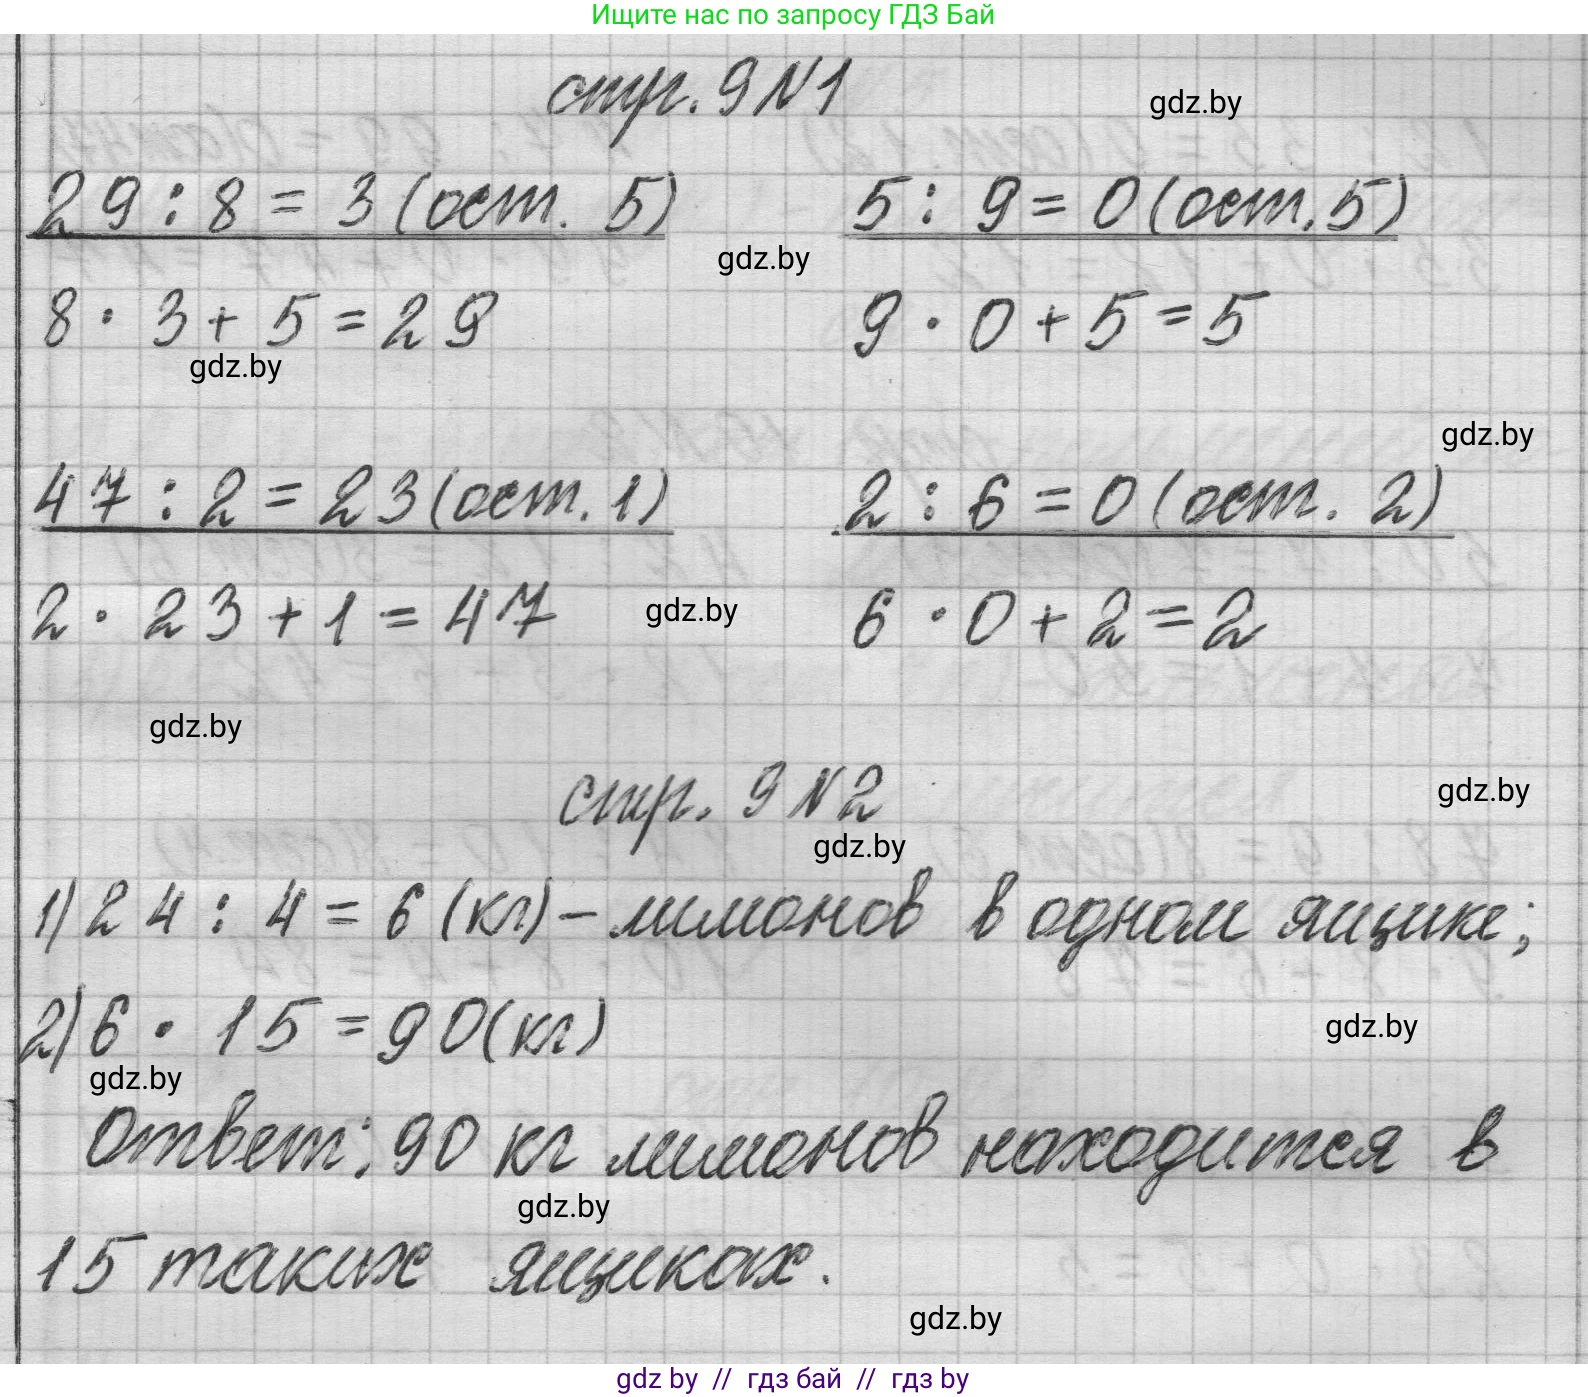 Ищите нас по запросу ГДЗ Бай
стр. 9 N1
gdz.by
29 : 8 = 3 (ост. 5)
5 : 9 = 0 (ост. 5)
gdz.by
8 · 3 + 5 = 29
9 · 0 + 5 = 5
gdz.by
gdz.by
47 : 2 = 23 (ост. 1)
2 : 6 = 0 (ост. 2)
2 · 23 + 1 = 47
gdz.by
6 · 0 + 2 = 2
gdz.by
стр. 9 N2
gdz.by
gdz.by
1) 24 : 4 = 6 (кг) – лимонов в одном ящике;
2) 6 · 15 = 90 (кг)
gdz.by
gdz.by
Ответ: 90 кг лимонов находится в
gdz.by
15 таких ящиках.
gdz.by
gdz by // гдз бай // гдз by